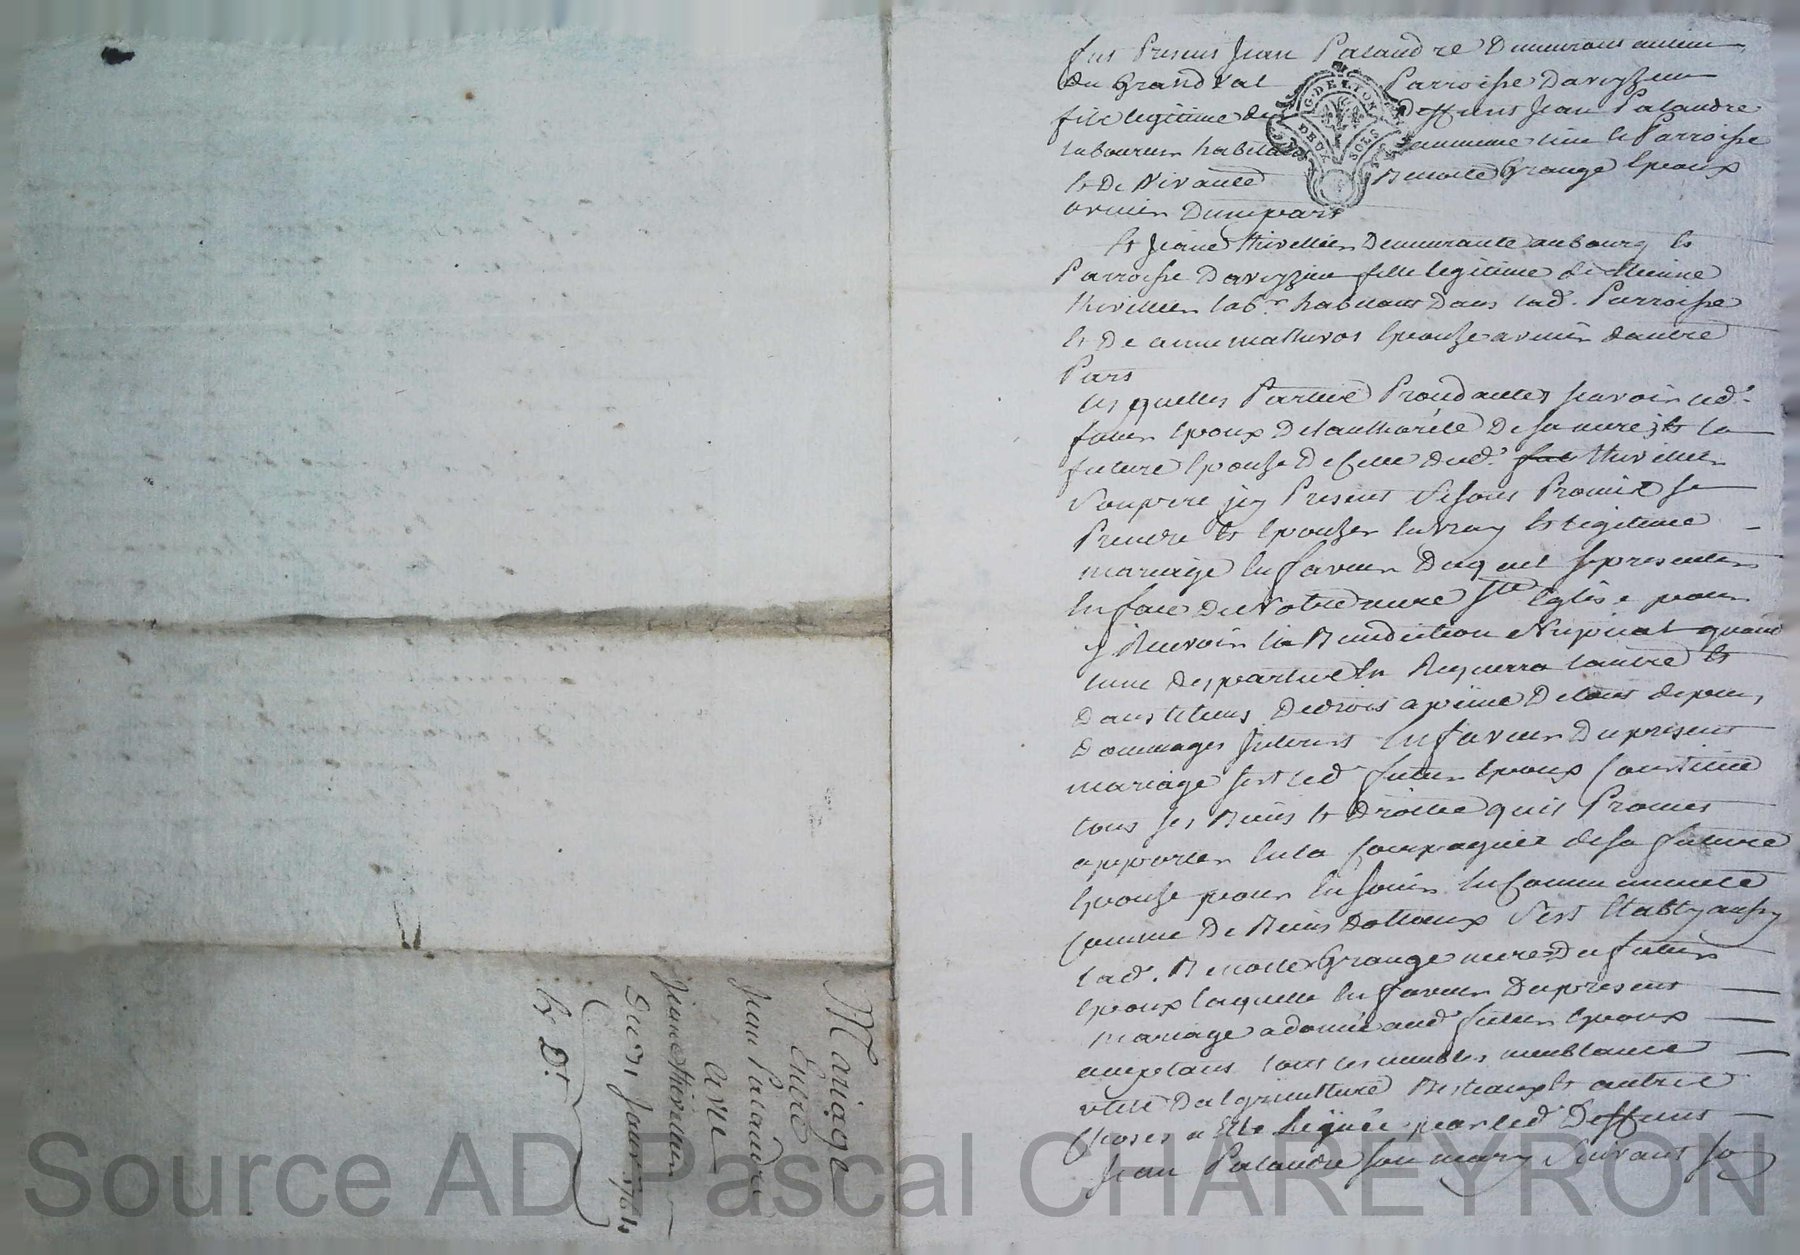 Mariage
Entre
Jean Palandre
avec
Jeanne Thivellier
Du 21 Janv. 1764
Exp.
fut Present Jean Palandre Demeurant au lieu
du Grand Val Parroisse Davezieu
fils legitime de Deffunt Jean Palandre
laboureur habitant au meme lieu et Parroisse
et De vivante Benoite Grange Epoux
avenir Dune part
G. DE LYON
DEUX SOLS
Et Jeanne Thivellier Demeurante au bourg et
Parroisse Davezieu fille legitime de Etienne
Thivellier lab.r habitant Dans lad. Parroisse
et De anne mathevos Epouse avenir dautre
Part
lesquelles Parties Procedantes scavoir led.
futur Epoux De l'authorité De sa mere et la
future Epouse De celle dud. Thivellier
Son pere icy Present Se sont Promis se
Prendre et Epouser en vray et legitime
mariage En faveur Duquel se presenter
En face De Notre mere Ste Eglise pour
y Recevoir la Benediction Nuptialle quand
lune des parties En Requerra lautre Et
Dans le tems De Droit a peine De tous depens
Dommages Interets En faveur Du present
mariage sest led. futur Epoux Constitué
tous ses Biens Et Droits quil Promet
apporter En la Compagnie de sa future
Epouse pour En jouir En Communauté
Comme De Biens Dottaux S'est Etably aussy
lad. Benoite Grange mere Du futur
Epoux laquelle En faveur Du present
Mariage a donné aud. futur Epoux
tous les meubles
Dalgriculture Bestiaux Et autres
Choses a Elle Leguée par led. Deffunt
Jean Palandre son mary Suivant so
Source AD Pascal CHAREYRON